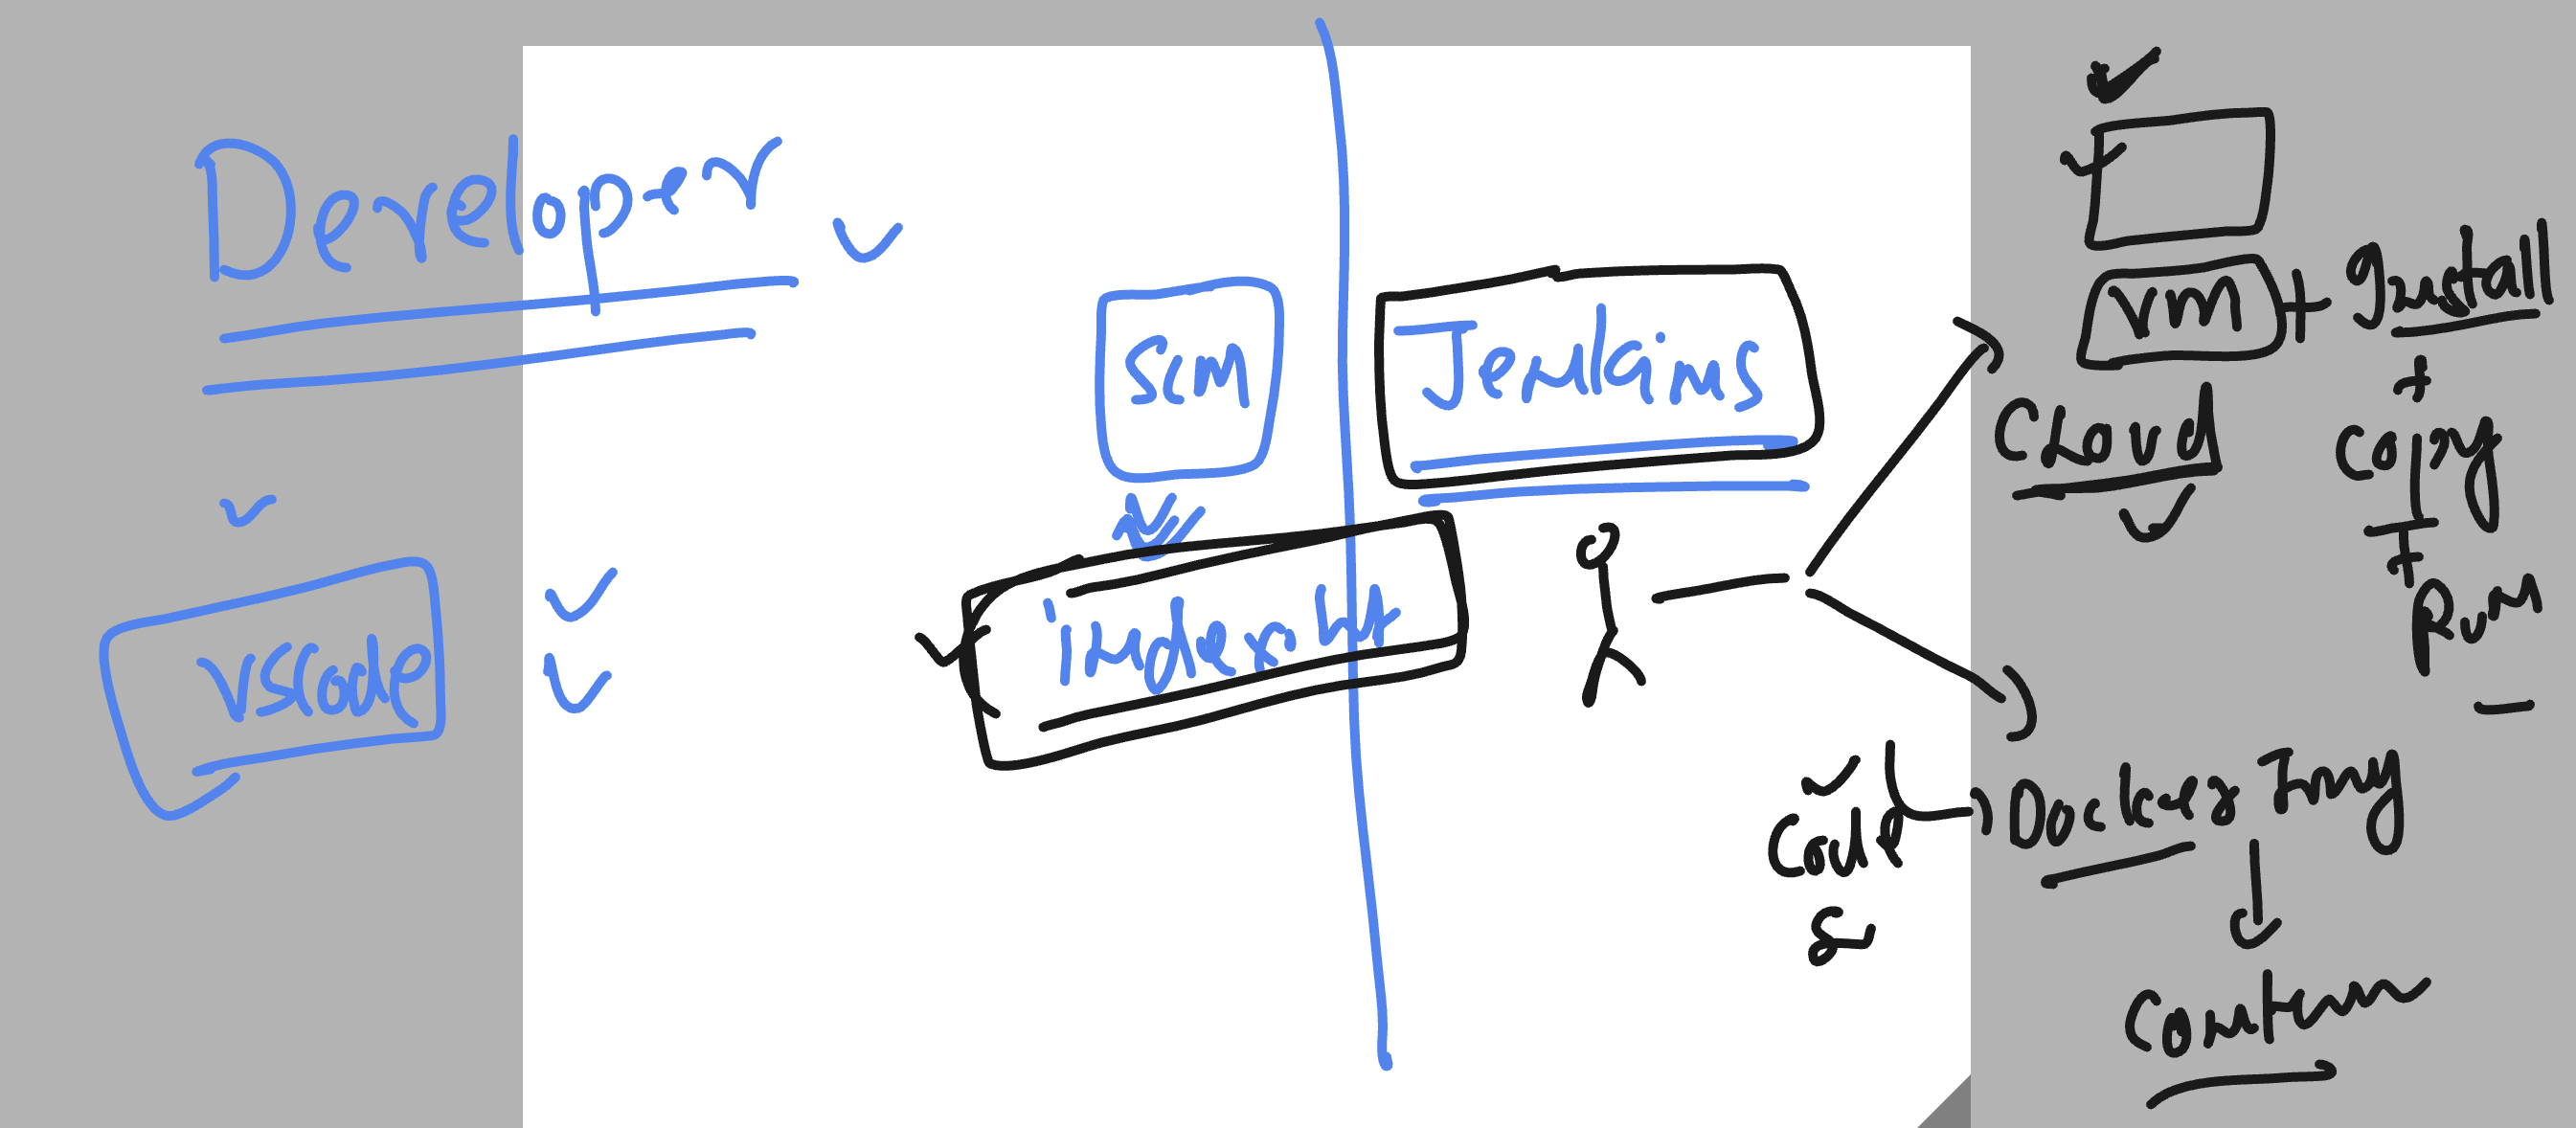 Developer
vscode
SCM
index.ht
Jenkins
VM + Install
+
Copy
+
Run
Cloud
Code
Docker Img
Contain